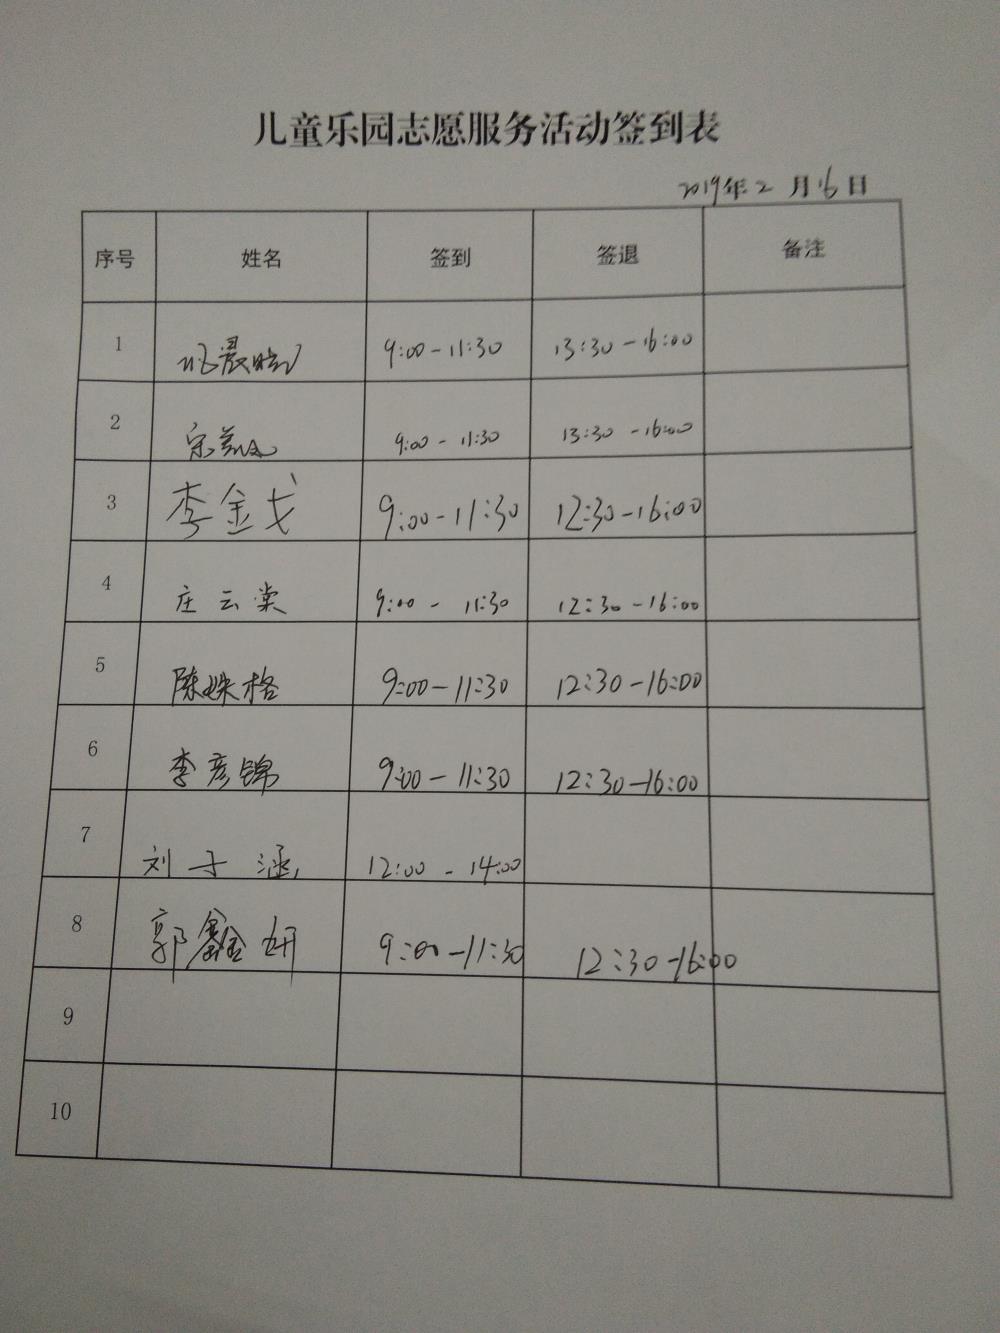 儿童乐园志愿服务活动签到表
2019年2月16日
序号 姓名 签到 签退 备注
1 9:00-11:30 13:30-16:00
2 宋 9:00-11:30 13:30-16:00
3 李金戈 9:00-11:30 12:30-16:00
4 庄云棠 9:00-11:30 12:30-16:00
5 陈姝格 9:00-11:30 12:30-16:00
6 李彦锦 9:00-11:30 12:30-16:00
7 刘子涵 12:00-14:00
8 郭鑫妍 9:00-11:30 12:30-16:00
9
10